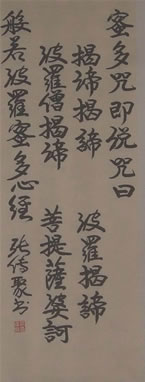 蜜多咒即说咒曰
揭諦揭諦 波羅揭諦
波羅僧揭諦 菩提薩婆訶
般若波羅蜜多心经
張传聚书